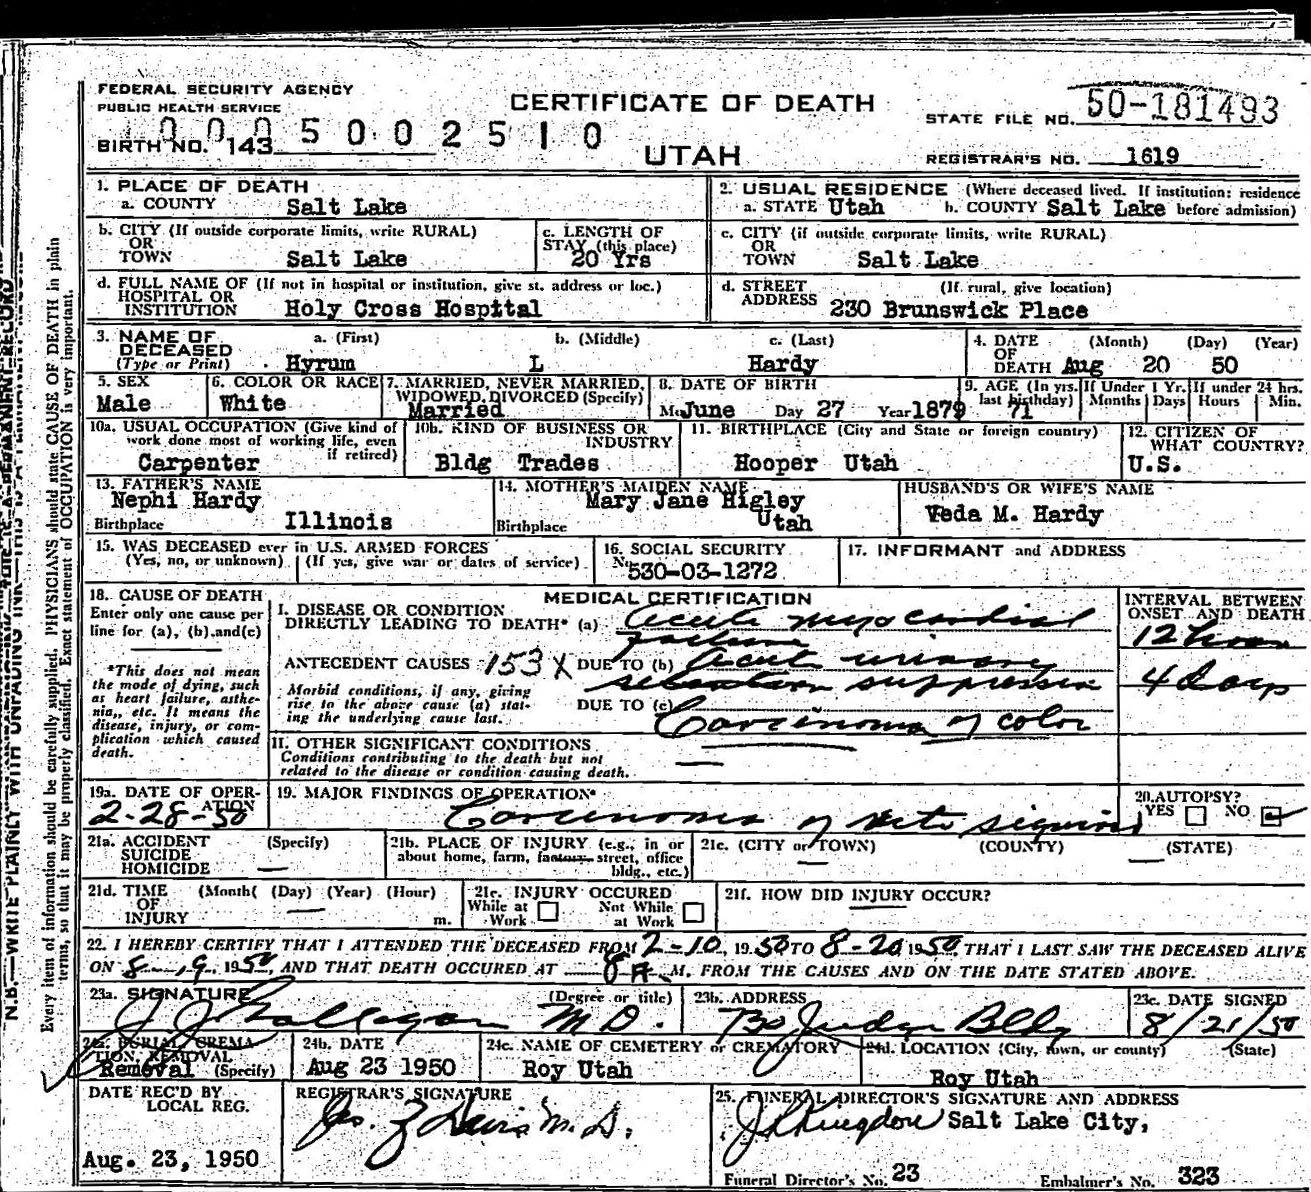 FEDERAL SECURITY AGENCY
PUBLIC HEALTH SERVICE
CERTIFICATE OF DEATH
STATE FILE NO. 50-181493
0005002510
BIRTH NO. 143
UTAH
REGISTRAR'S NO. 1619
1. PLACE OF DEATH
a. COUNTY Salt Lake
2. USUAL RESIDENCE (Where deceased lived. If institution: residence
a. STATE Utah b. COUNTY Salt Lake before admission)
b. CITY (If outside corporate limits, write RURAL)
OR
TOWN Salt Lake
c. LENGTH OF
STAY (this place)
20 Yrs
c. CITY (if outside corporate limits, write RURAL)
OR
TOWN Salt Lake
d. FULL NAME OF (If not in hospital or institution, give st. address or loc.)
HOSPITAL OR
INSTITUTION Holy Cross Hospital
d. STREET (If rural, give location)
ADDRESS 230 Brunswick Place
3. NAME OF a. (First) b. (Middle) c. (Last)
DECEASED
(Type or Print) Hyrum L Hardy
4. DATE (Month) (Day) (Year)
OF
DEATH Aug 20 50
5. SEX
Male
6. COLOR OR RACE
White
7. MARRIED, NEVER MARRIED,
WIDOWED, DIVORCED (Specify)
Married
8. DATE OF BIRTH
Mo June Day 27 Year 1879
9. AGE (In yrs. last birthday)
71
If Under 1 Yr.
Months Days
If under 24 hrs.
Hours Min.
10a. USUAL OCCUPATION (Give kind of
work done most of working life, even
if retired)
Carpenter
10b. KIND OF BUSINESS OR
INDUSTRY
Bldg Trades
11. BIRTHPLACE (City and State or foreign country)
Hooper Utah
12. CITIZEN OF
WHAT COUNTRY?
U.S.
13. FATHER'S NAME
Nephi Hardy
Birthplace Illinois
14. MOTHER'S MAIDEN NAME
Mary Jane Higley
Birthplace Utah
HUSBAND'S OR WIFE'S NAME
Veda M. Hardy
15. WAS DECEASED ever in U.S. ARMED FORCES
(Yes, no, or unknown) (If yes, give war or dates of service)
16. SOCIAL SECURITY
No 530-03-1272
17. INFORMANT and ADDRESS
18. CAUSE OF DEATH
Enter only one cause per
line for (a), (b), and (c)
*This does not mean
the mode of dying, such
as heart failure, asthe-
nia,, etc. It means the
disease, injury, or com-
plication which caused
death.
MEDICAL CERTIFICATION
I. DISEASE OR CONDITION
DIRECTLY LEADING TO DEATH* (a) Acute myocardial
failure
ANTECEDENT CAUSES 153X DUE TO (b) Acute urinary
retention suppression
Morbid conditions, if any, giving
rise to the above cause (a) stat-
ing the underlying cause last.
DUE TO (c) Carcinoma of colon
INTERVAL BETWEEN
ONSET AND DEATH
12 hours
4 days
II. OTHER SIGNIFICANT CONDITIONS
Conditions contributing to the death but not
related to the disease or condition causing death.
19a. DATE OF OPER-
ATION
2-28-50
19. MAJOR FINDINGS OF OPERATION*
Carcinoma of recto sigmoid
20. AUTOPSY?
YES NO
21a. ACCIDENT (Specify)
SUICIDE
HOMICIDE
21b. PLACE OF INJURY (e.g., in or
about home, farm, factory, street, office
bldg., etc.)
21c. (CITY or TOWN) (COUNTY) (STATE)
21d. TIME (Month( (Day) (Year) (Hour)
OF
INJURY m.
21e. INJURY OCCURED
While at Not While
Work at Work
21f. HOW DID INJURY OCCUR?
22. I HEREBY CERTIFY THAT I ATTENDED THE DECEASED FROM 2-10, 1950 TO 8-20 1950, THAT I LAST SAW THE DECEASED ALIVE
ON 8-19, 1950, AND THAT DEATH OCCURED AT 8 A M. FROM THE CAUSES AND ON THE DATE STATED ABOVE.
23a. SIGNATURE (Degree or title)
J J Galligan M D.
23b. ADDRESS
Judge Bldg
23c. DATE SIGNED
8/21/50
24a. BURIAL, CREMA
TION, REMOVAL
Removal (Specify)
24b. DATE
Aug 23 1950
24c. NAME OF CEMETERY or CREMATORY
Roy Utah
24d. LOCATION (City, town, or county) (State)
Roy Utah
DATE REC'D BY
LOCAL REG.
Aug. 23, 1950
REGISTRAR'S SIGNATURE
M.D.
25. FUNERAL DIRECTOR'S SIGNATURE AND ADDRESS
J L Kingdon Salt Lake City,
Funeral Director's No. 23 Embalmer's No. 323
N.B.—WRITE PLAINLY WITH UNFADING INK—THIS IS A PERMANENT RECORD
Every item of information should be carefully supplied. PHYSICIANS should state CAUSE OF DEATH in plain
terms, so that it may be properly classified. Exact statement of OCCUPATION is very important.